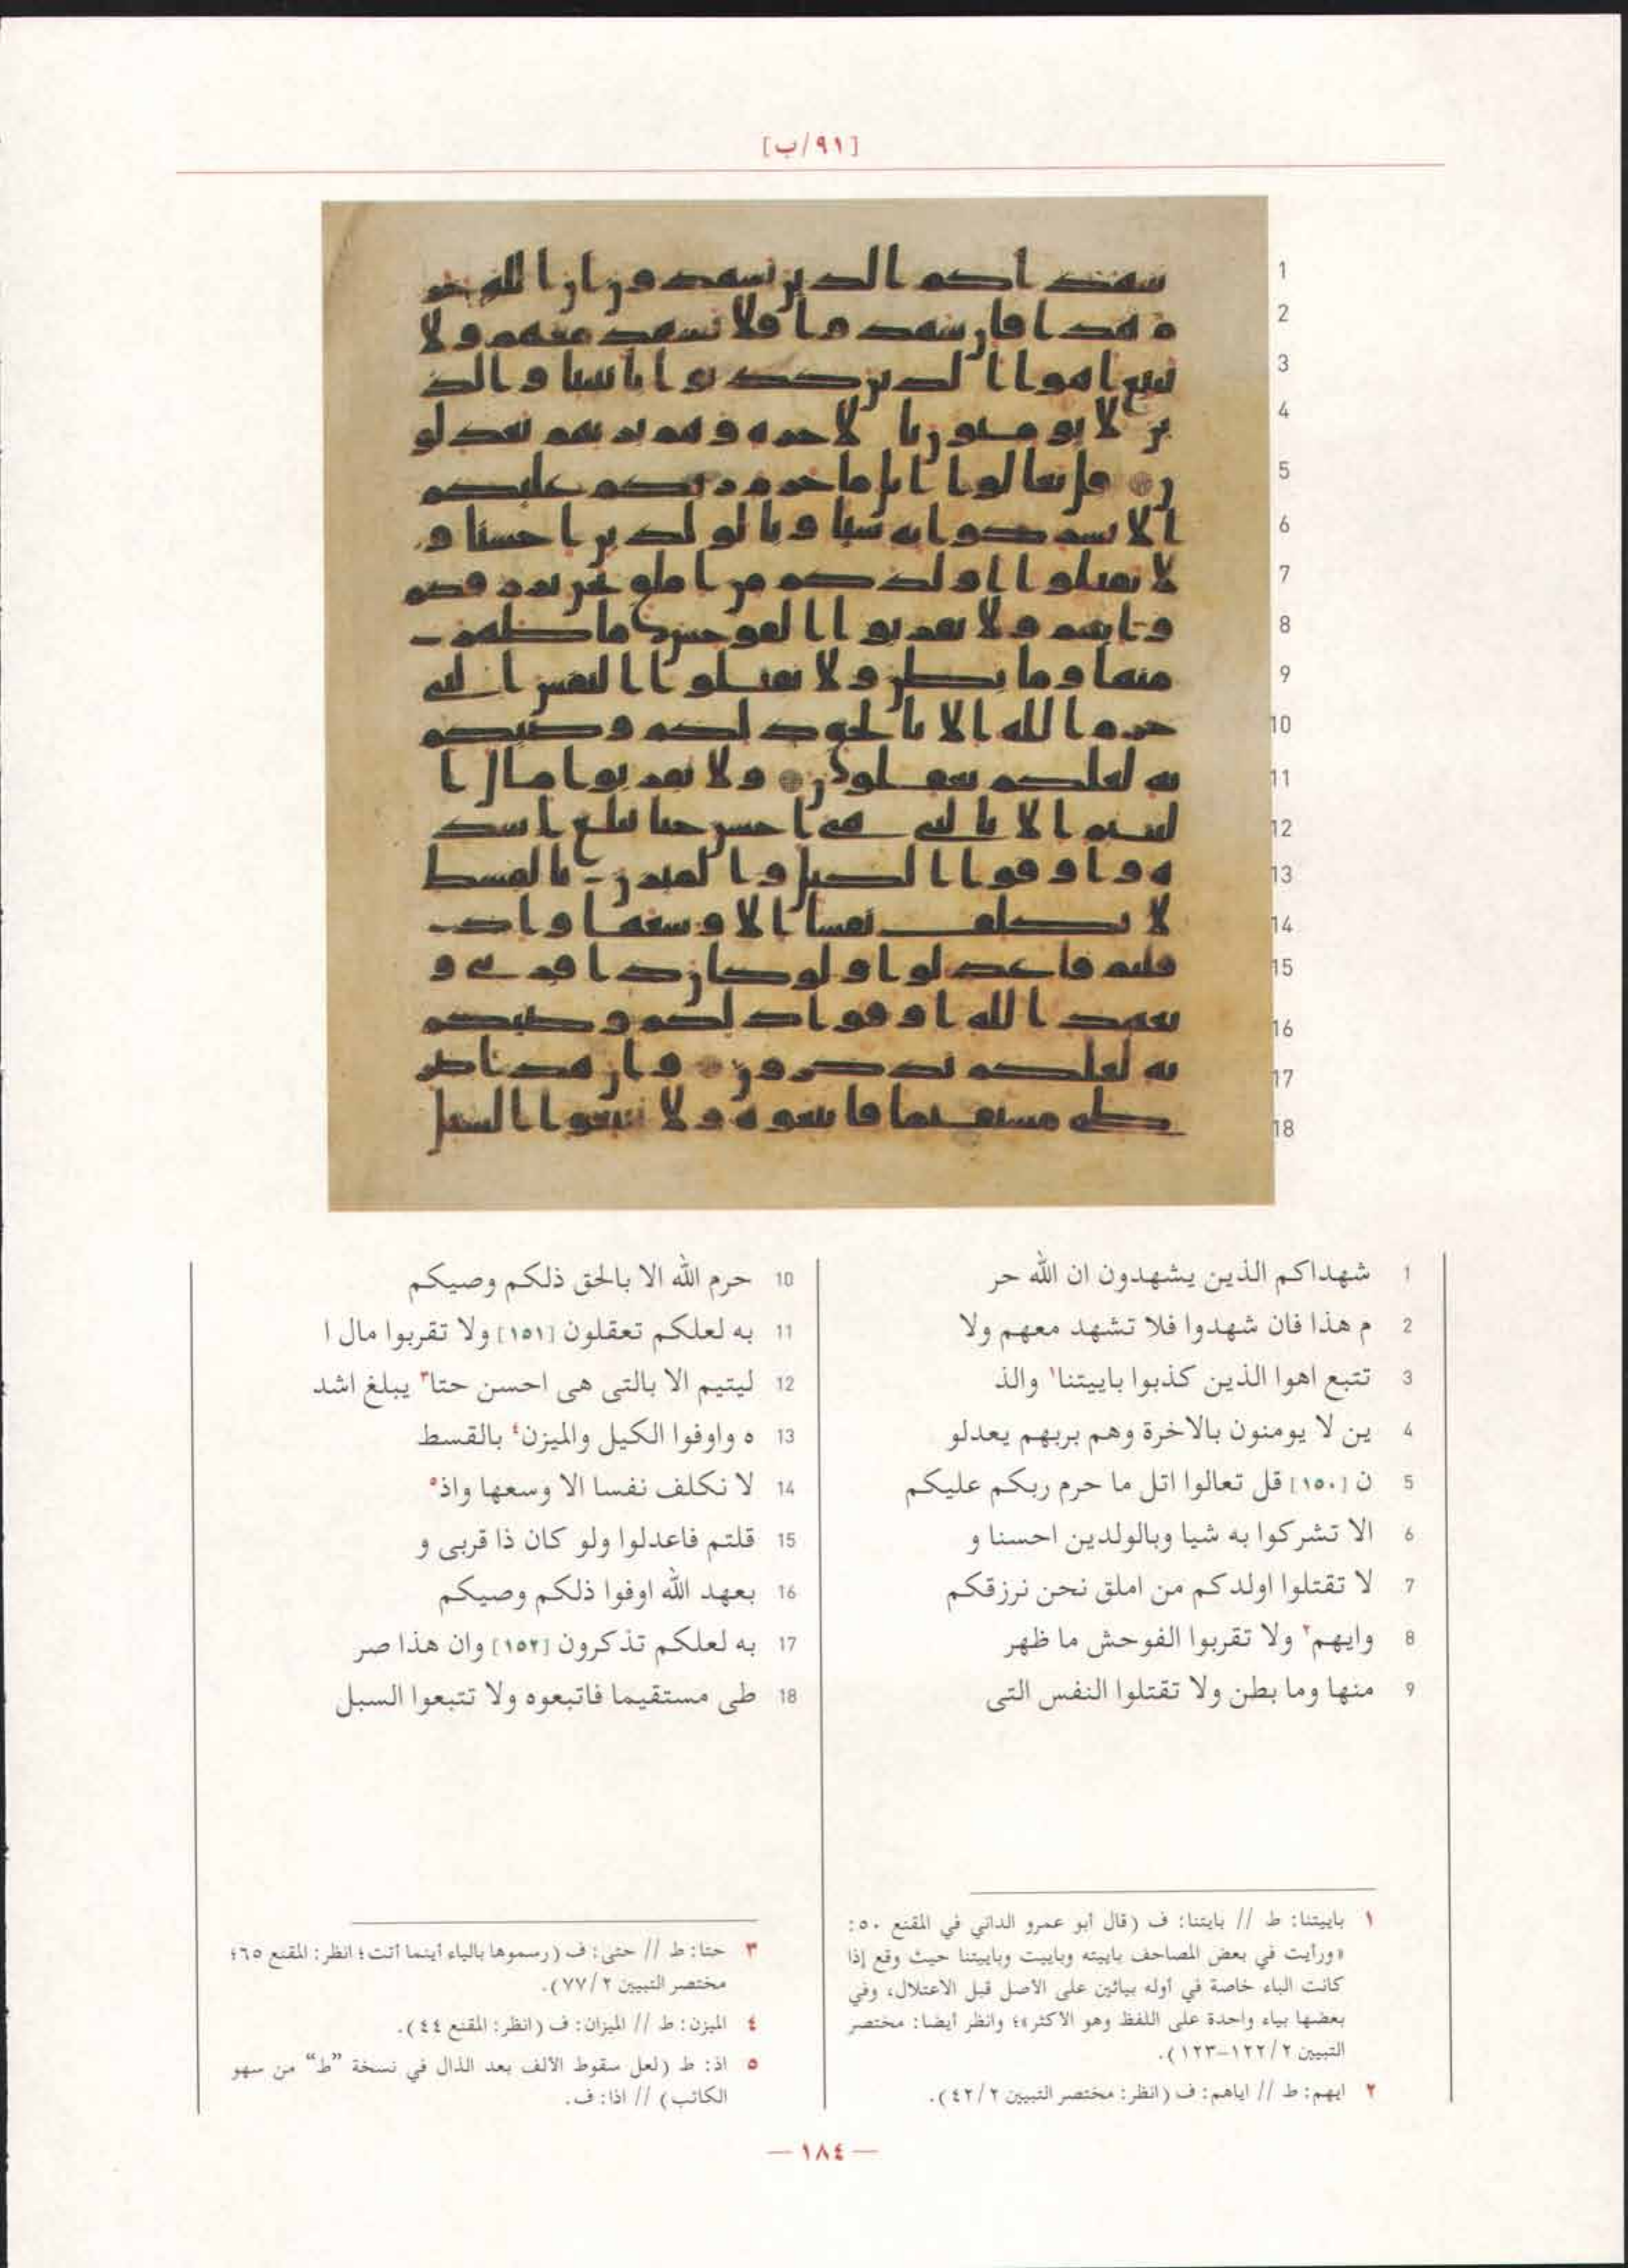 [٩١/ب]
1 شهداكم الذين يشهدون ان الله حر
2 م هذا فان شهدوا فلا تشهد معهم ولا
3 تتبع اهوا الذين كذبوا باييتنا١ والذ
4 ين لا يومنون بالاخرة وهم بربهم يعدلو
5 ن [١٥٠] قل تعالوا اتل ما حرم ربكم عليكم
6 الا تشركوا به شيا وبالولدين احسنا و
7 لا تقتلوا اولدكم من املق نحن نرزقكم
8 وايهم٢ ولا تقربوا الفوحش ما ظهر
9 منها وما بطن ولا تقتلوا النفس التى
10 حرم الله الا بالحق ذلكم وصيكم
11 به لعلكم تعقلون [١٥١] ولا تقربوا مال ا
12 ليتيم الا بالتى هى احسن حتا٣ يبلغ اشد
13 ه واوفوا الكيل والميزن٤ بالقسط
14 لا نكلف نفسا الا وسعها واذ٥
15 قلتم فاعدلوا ولو كان ذا قربى و
16 بعهد الله اوفوا ذلكم وصيكم
17 به لعلكم تذكرون [١٥٢] وان هذا صر
18 طى مستقيما فاتبعوه ولا تتبعوا السبل
١ باييتنا: ط // بايتنا: ف (قال أبو عمرو الداني في المقنع ٥٠:
«ورأيت في بعض المصاحف باييته وباييت وباييتنا حيث وقع إذا
كانت الباء خاصة في أوله بيائين على الاصل قبل الاعتلال، وفي
بعضها بياء واحدة على اللفظ وهو الاكثر»؛ وانظر أيضا: مختصر
التبيين ٢/ ١٢٢-١٢٣).
٢ ايهم: ط // اياهم: ف (انظر: مختصر التبيين ٢/ ٤٢).
٣ حتا: ط // حتى: ف (رسموها بالياء أينما أتت؛ انظر: المقنع ٦٥؛
مختصر التبيين ٢/ ٧٧).
٤ الميزن: ط // الميزان: ف (انظر: المقنع ٤٤).
٥ اذ: ط (لعل سقوط الألف بعد الذال في نسخة "ط" من سهو
الكاتب) // اذا: ف.
— ١٨٤ —